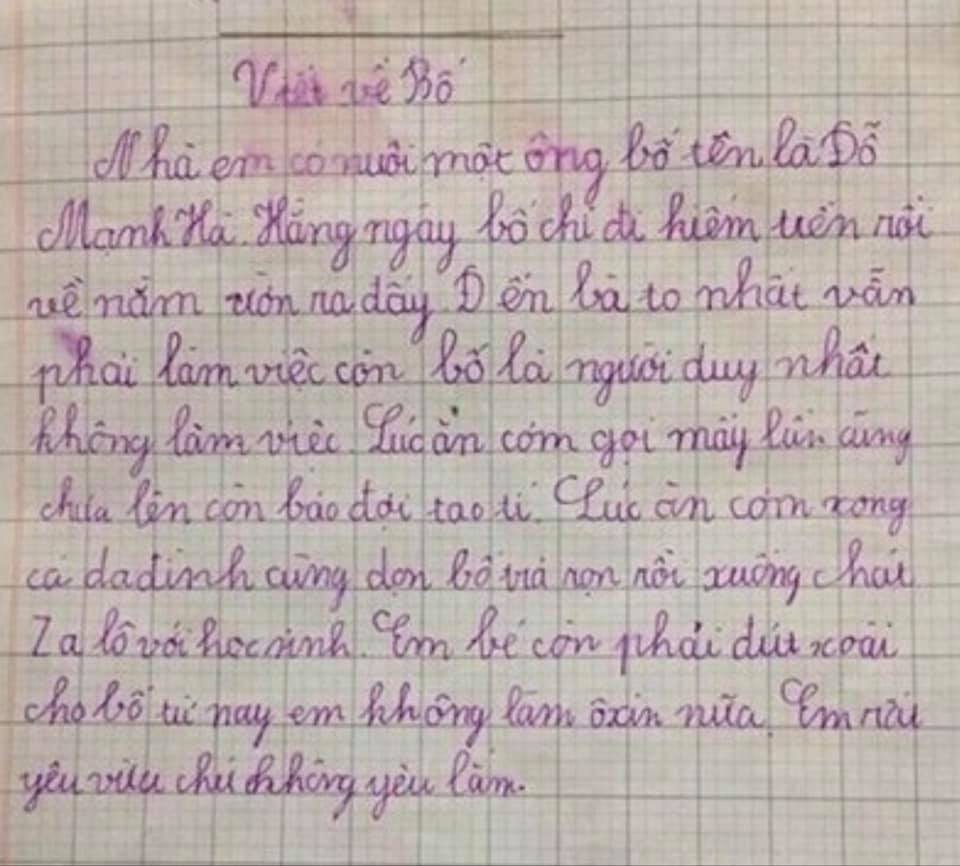 Viết về Bố
Nhà em có nuôi một ông bố tên là Đỗ
Mạnh Hà. Hằng ngày bố chỉ đi hiểm uên rồi
về nằm ườn ra đấy. Đến bà to nhất vẫn
phải làm việc còn bố là người duy nhất
không làm việc. Lúc ăn cơm gọi mấy lần cũng
chưa lên còn bảo đợi tao tí. Lúc ăn cơm xong
cả da đình cùng dọn bố trả rọn rồi xuống chát
Za lô với học sinh. Em bé còn phải dút xoài
cho bố từ nay em không làm ôxin nữa. Em rất
yêu vừa chứ không yêu lắm.